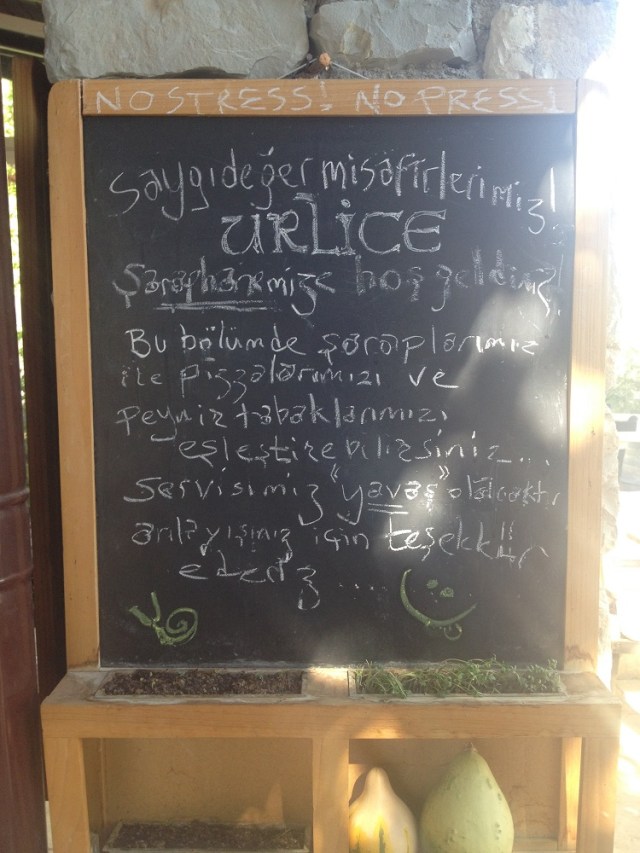 NO STRESS! NO PRESS!
Saygıdeğer misafirlerimiz!
URLİCE
Şaraphanemize hoş geldiniz!
Bu bölümde şaraplarımız
ile pizzalarımızı ve
peynir tabaklarımızı
eşleştirebilirsiniz...
Servisimiz "yavaş" olacaktır
anlayışınız için teşekkür
ederiz ....